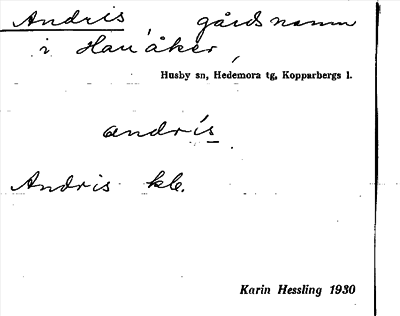 Andris gårdsnamn
i Hanåker,
Husby sn, Hedemora tg, Kopparbergs l.
andrís
Andris kb.
Karin Hessling 1930